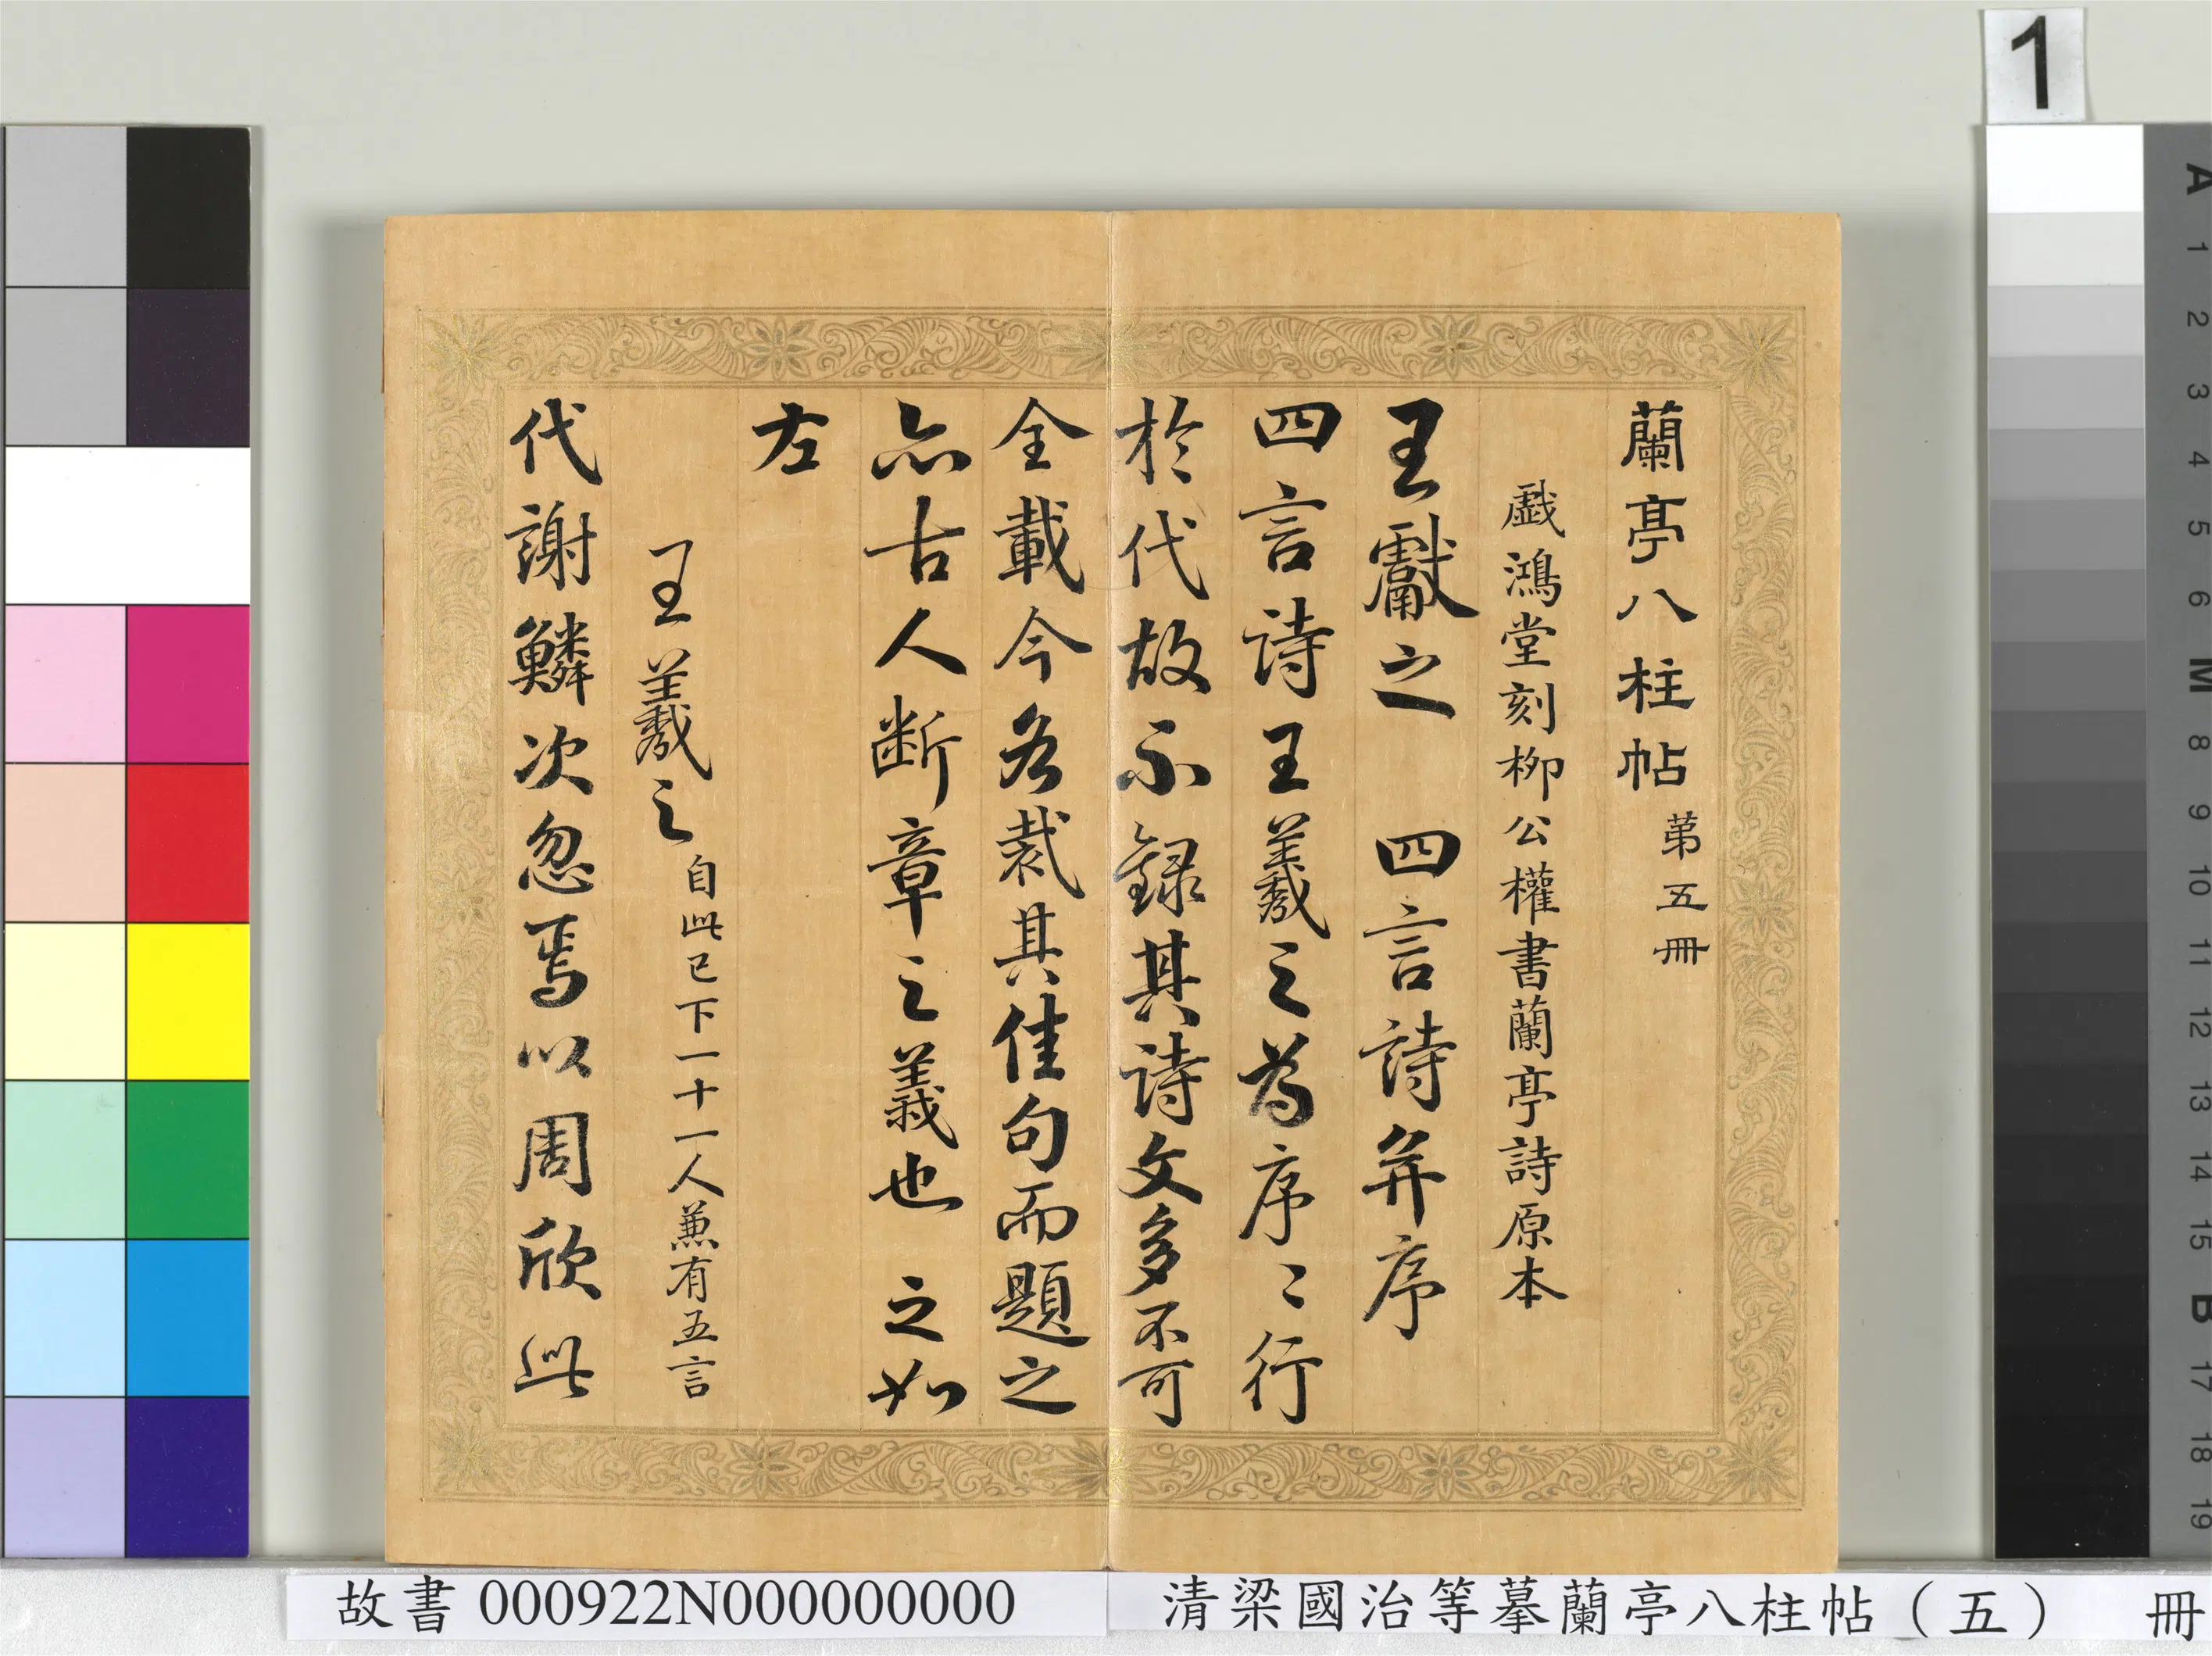 蘭亭八柱帖第五冊
戲鴻堂刻柳公權書蘭亭詩原本
王獻之 四言詩并序
四言詩王羲之為序〻行
於代故不錄其詩文多不可
全載今各裁其佳句而題之
亦古人斷章之義也 之如
左
王羲之自此已下一十一人兼有五言
代謝鱗次忽焉以周欣此
1
A
1
2
3
4
5
6
M
8
9
10
11
12
13
14
15
B
17
18
19
故書000922N000000000
清梁國治等摹蘭亭八柱帖(五) 冊